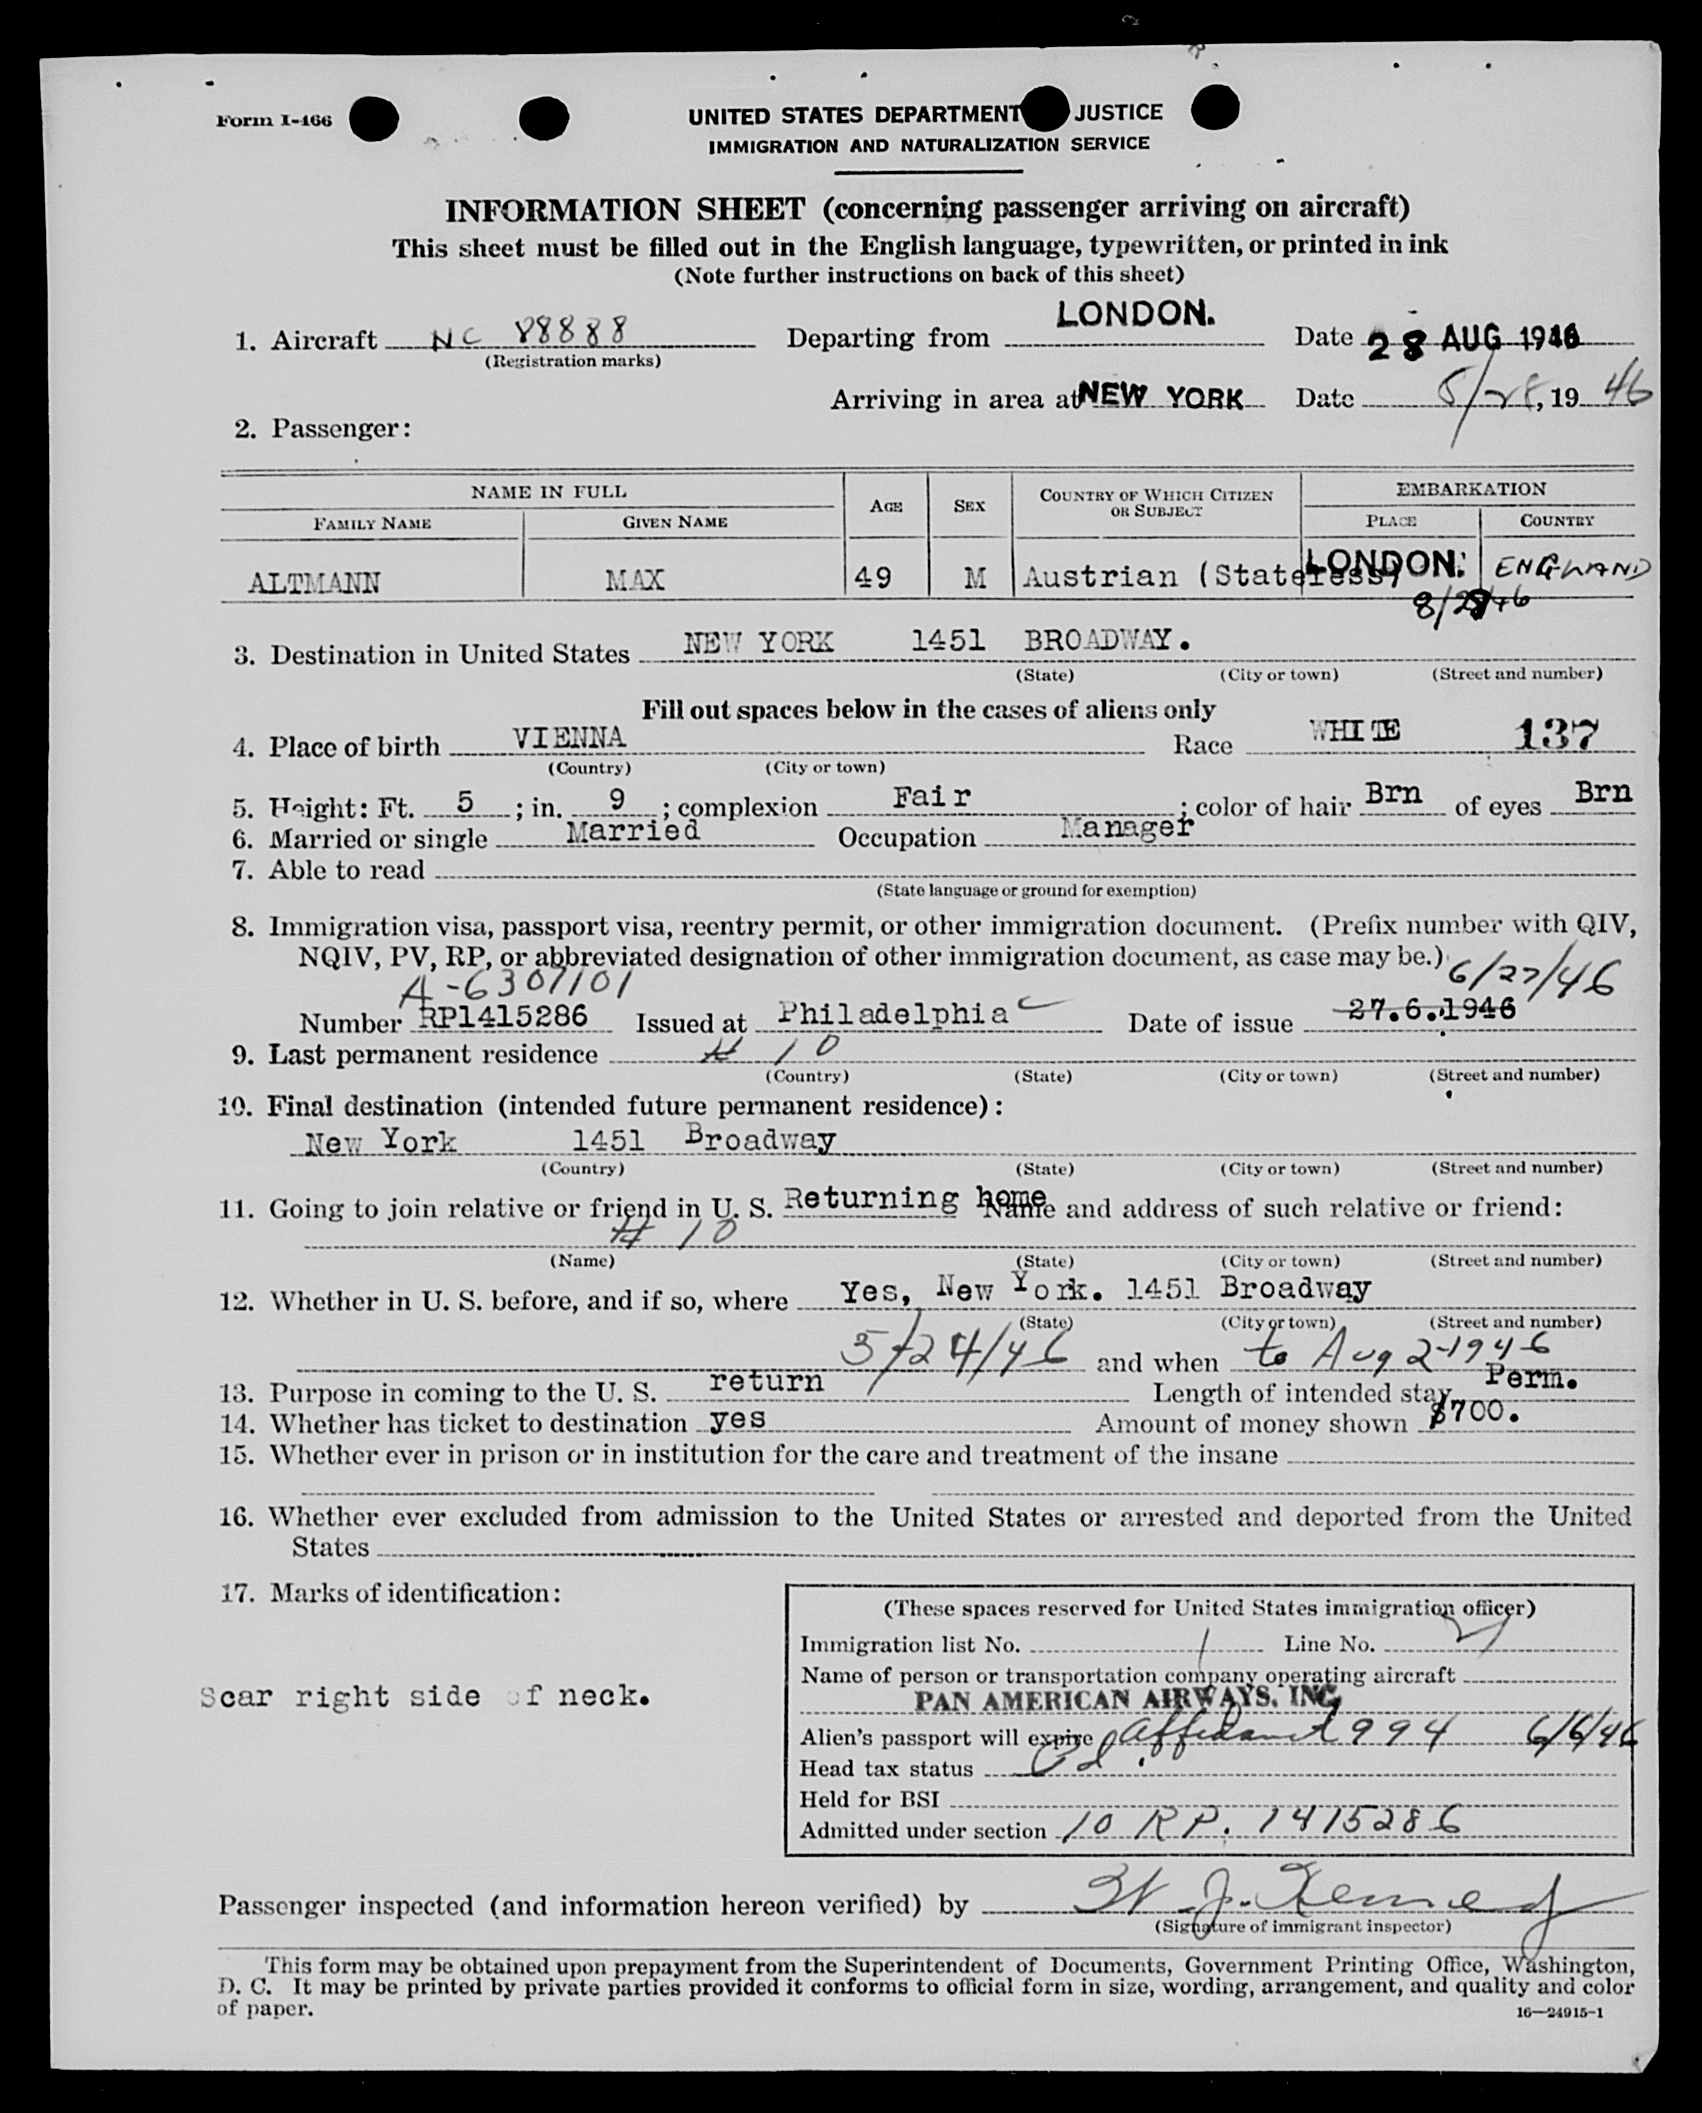 Form I-466
UNITED STATES DEPARTMENT JUSTICE
IMMIGRATION AND NATURALIZATION SERVICE
INFORMATION SHEET (concerning passenger arriving on aircraft)
This sheet must be filled out in the English language, typewritten, or printed in ink
(Note further instructions on back of this sheet)
1. Aircraft NC 88888 Departing from LONDON. Date 28 AUG 1946
(Registration marks)
Arriving in area at NEW YORK Date 8/28, 19 46
2. Passenger:
NAME IN FULL AGE SEX COUNTRY OF WHICH CITIZEN OR SUBJECT EMBARKATION
FAMILY NAME GIVEN NAME PLACE COUNTRY
ALTMANN MAX 49 M Austrian (Stateless) LONDON. ENGLAND
8/28/46
3. Destination in United States NEW YORK 1451 BROADWAY.
(State) (City or town) (Street and number)
Fill out spaces below in the cases of aliens only
4. Place of birth VIENNA Race WHITE 137
(Country) (City or town)
5. Height: Ft. 5 ; in. 9 ; complexion Fair ; color of hair Brn of eyes Brn
6. Married or single Married Occupation Manager
7. Able to read
(State language or ground for exemption)
8. Immigration visa, passport visa, reentry permit, or other immigration document. (Prefix number with QIV,
NQIV, PV, RP, or abbreviated designation of other immigration document, as case may be.)
A-6307101 6/27/46
Number RP1415286 Issued at Philadelphia Date of issue 27.6.1946
9. Last permanent residence # 10
(Country) (State) (City or town) (Street and number)
10. Final destination (intended future permanent residence):
New York 1451 Broadway
(Country) (State) (City or town) (Street and number)
11. Going to join relative or friend in U. S. Returning home Name and address of such relative or friend:
# 10
(Name) (State) (City or town) (Street and number)
12. Whether in U. S. before, and if so, where Yes, New York. 1451 Broadway
(State) (City or town) (Street and number)
5/24/46 and when to Aug 2-1946
13. Purpose in coming to the U. S. return Length of intended stay Perm.
14. Whether has ticket to destination yes Amount of money shown $700.
15. Whether ever in prison or in institution for the care and treatment of the insane
16. Whether ever excluded from admission to the United States or arrested and deported from the United
States
17. Marks of identification:
Scar right side of neck.
(These spaces reserved for United States immigration officer)
Immigration list No. 1 Line No.
Name of person or transportation company operating aircraft
PAN AMERICAN AIRWAYS, INC.
Alien's passport will expire Affidavit 994 6/6/46
Head tax status Pd.
Held for BSI
Admitted under section 10 RP. 1415286
Passenger inspected (and information hereon verified) by W. J. Kennedy
(Signature of immigrant inspector)
This form may be obtained upon prepayment from the Superintendent of Documents, Government Printing Office, Washington,
D. C. It may be printed by private parties provided it conforms to official form in size, wording, arrangement, and quality and color
of paper.
16—24915-1